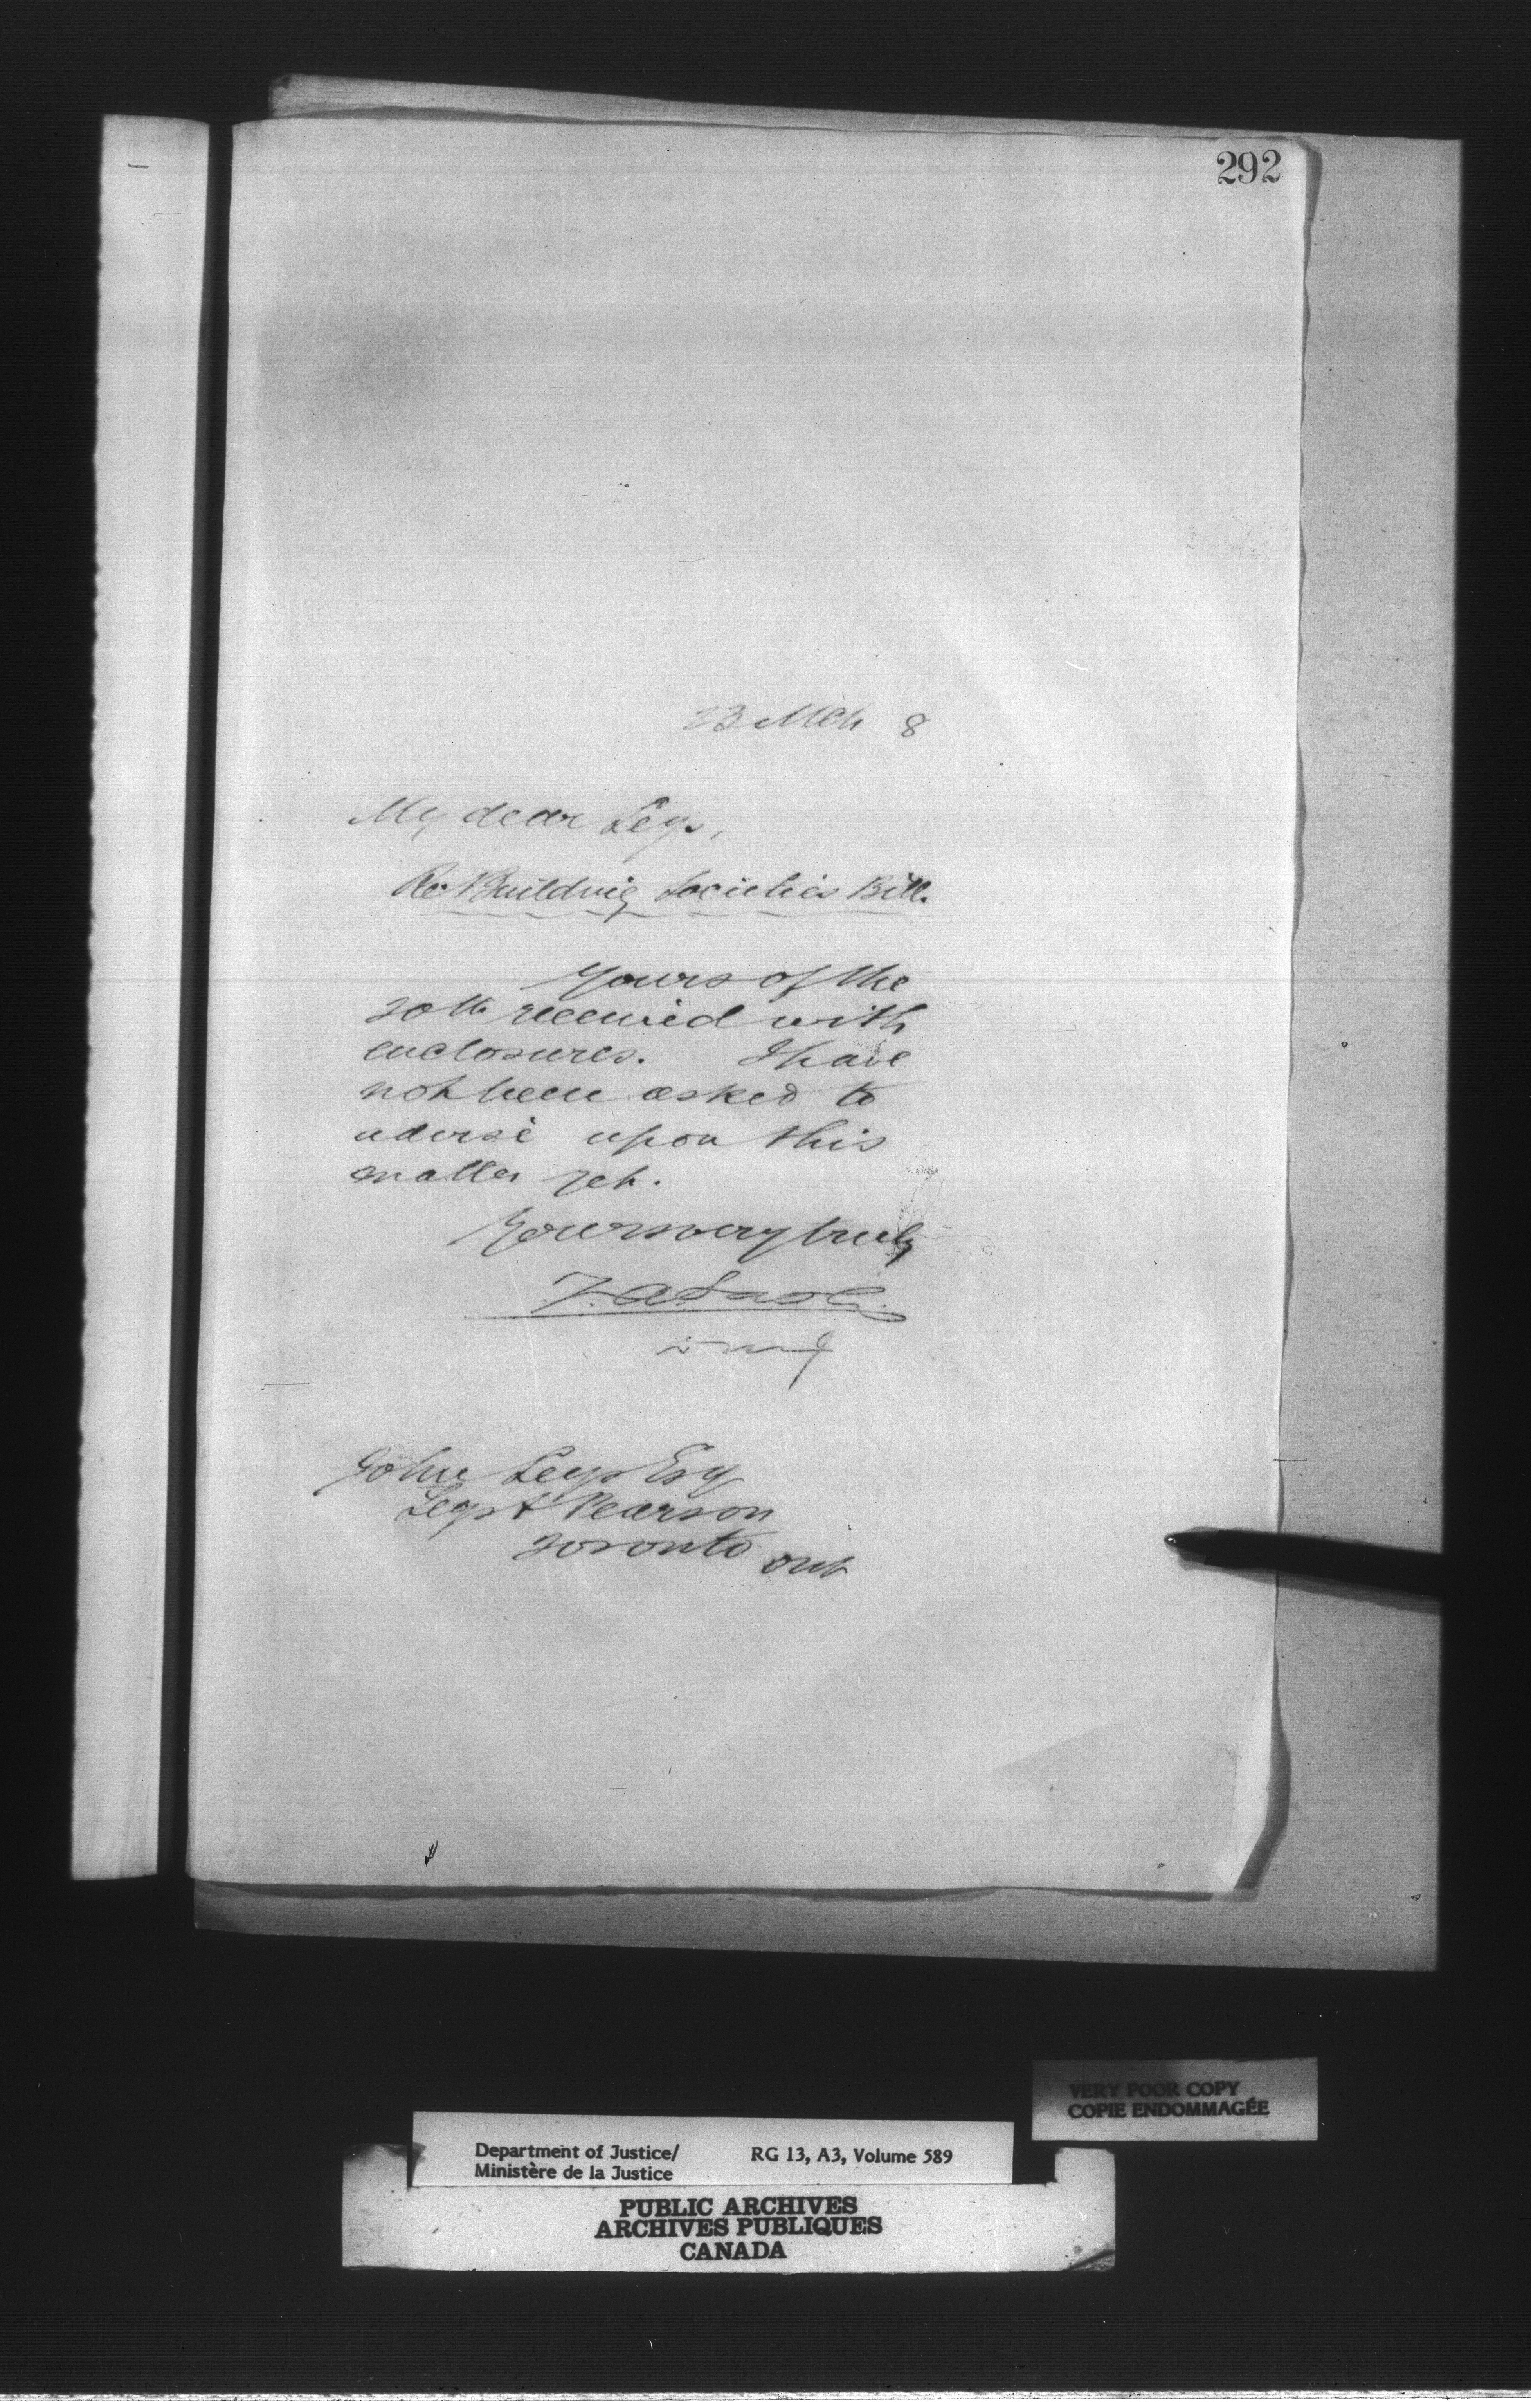 292
23 Mch 8
My dear Leys,
Re Building Societies Bill.
Yours of the
20th received with
enclosures. I have
not been asked to
advise upon this
matter yet.
Yours very truly
John Leys Esq
Leys & Pearson
Toronto Ont
VERY POOR COPY
COPIE ENDOMMAGÉE
Department of Justice/ RG 13, A3, Volume 589
Ministère de la Justice
PUBLIC ARCHIVES
ARCHIVES PUBLIQUES
CANADA